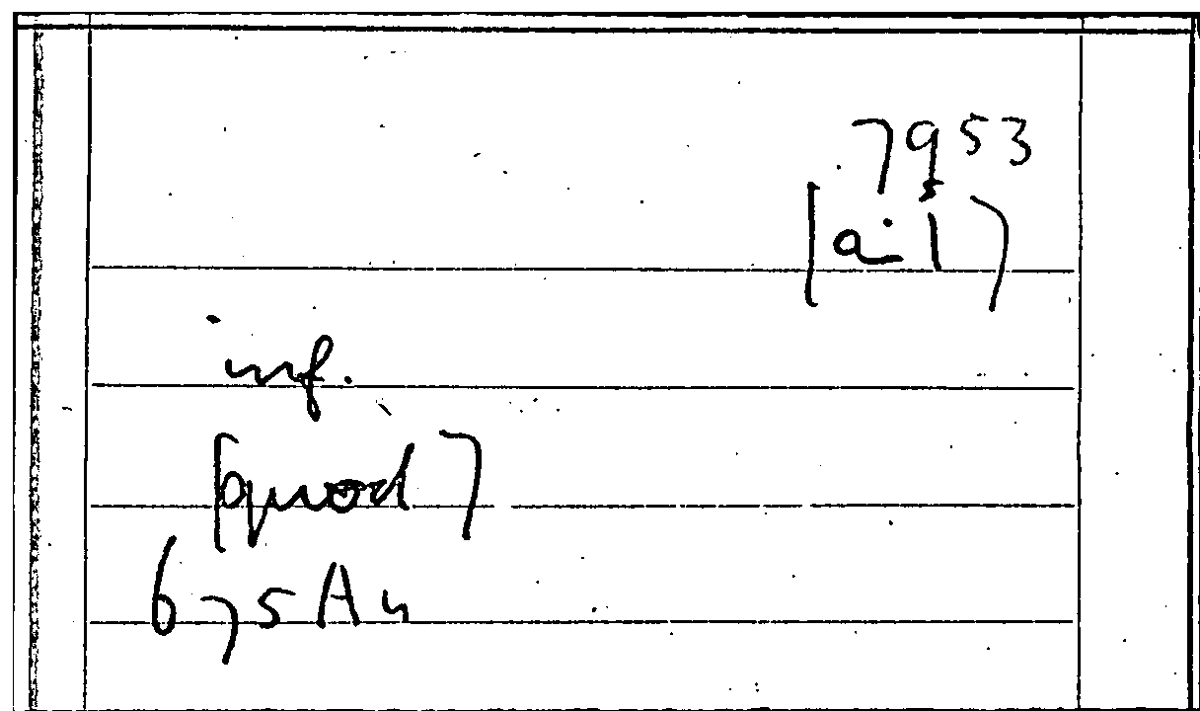 7953
[ail]
inf.
[quod]
675 An